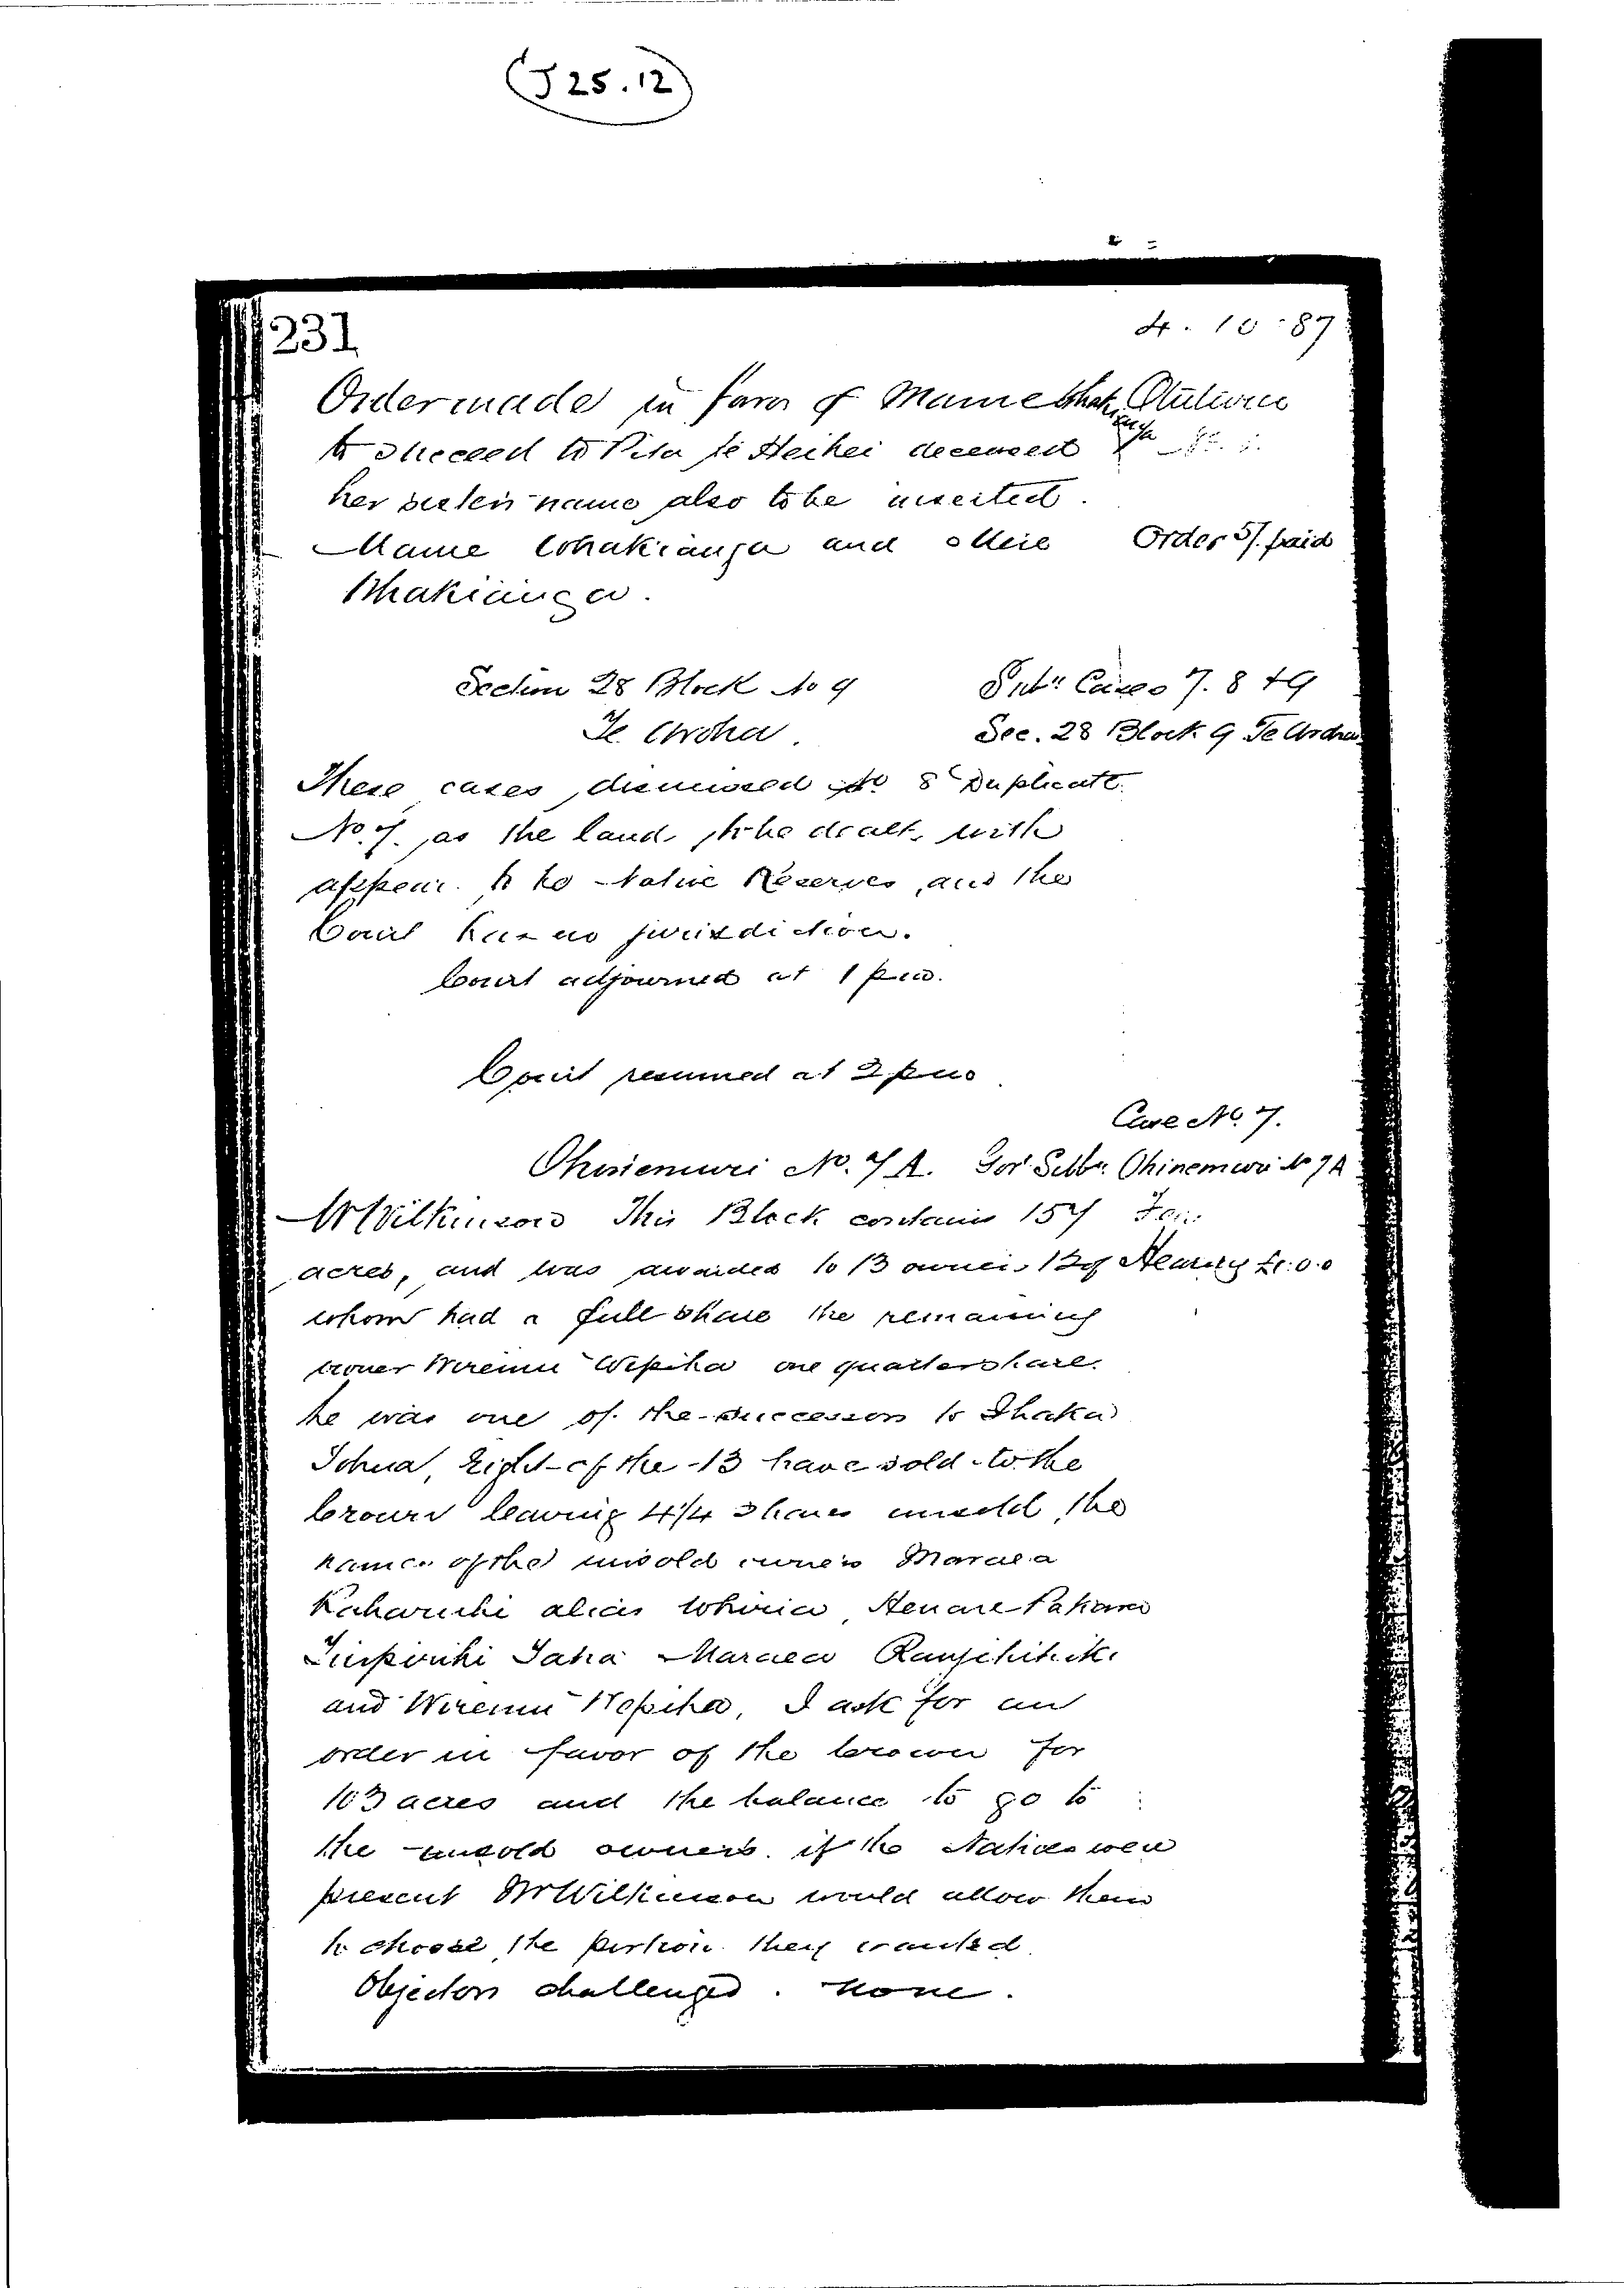 (J 25.12)
231
4. 10-87
Order made in favor of Mame Whakianga
to succeed to Pita te Heihei deceased
her sisters name also to be inserted.
Mame Whakianga and Order 5/. paid
Whakianga.
Section 28 Block No 9 Cases 7. 8 & 9
Te Aroha. Sec. 28 Block 9 Te Aroha
These cases dismissed No 8 Duplicate
No. 7. as the land to be dealt with
appear to be Native Reserves, and the
Court has no jurisdiction.
Court adjourned at 1 pm.
Court resumed at 2 pm
Case No. 7.
Ohinemuri No. 7 A. Ohinemuri No 7A
Mr Wilkinson This Block contains 157
acres, and was awarded to 13 owners 12 of Hearing £1.0.0
whom had a full share the remaining
owner Wiremu Wepiha one quarter share.
he was one of the successors to
Eight of the 13 have sold to the
Crown leaving 4 1/4 shares unsold, the
names of the unsold owners Maraea
alias Henare
Maraea
and Wiremu Wepiha, I ask for an
order in favor of the Crown for
103 acres and the balance to go to
the unsold owners. if the Natives were
present Mr Wilkinson would allow them
to choose the portion they wanted.
Objectors challenged. None.